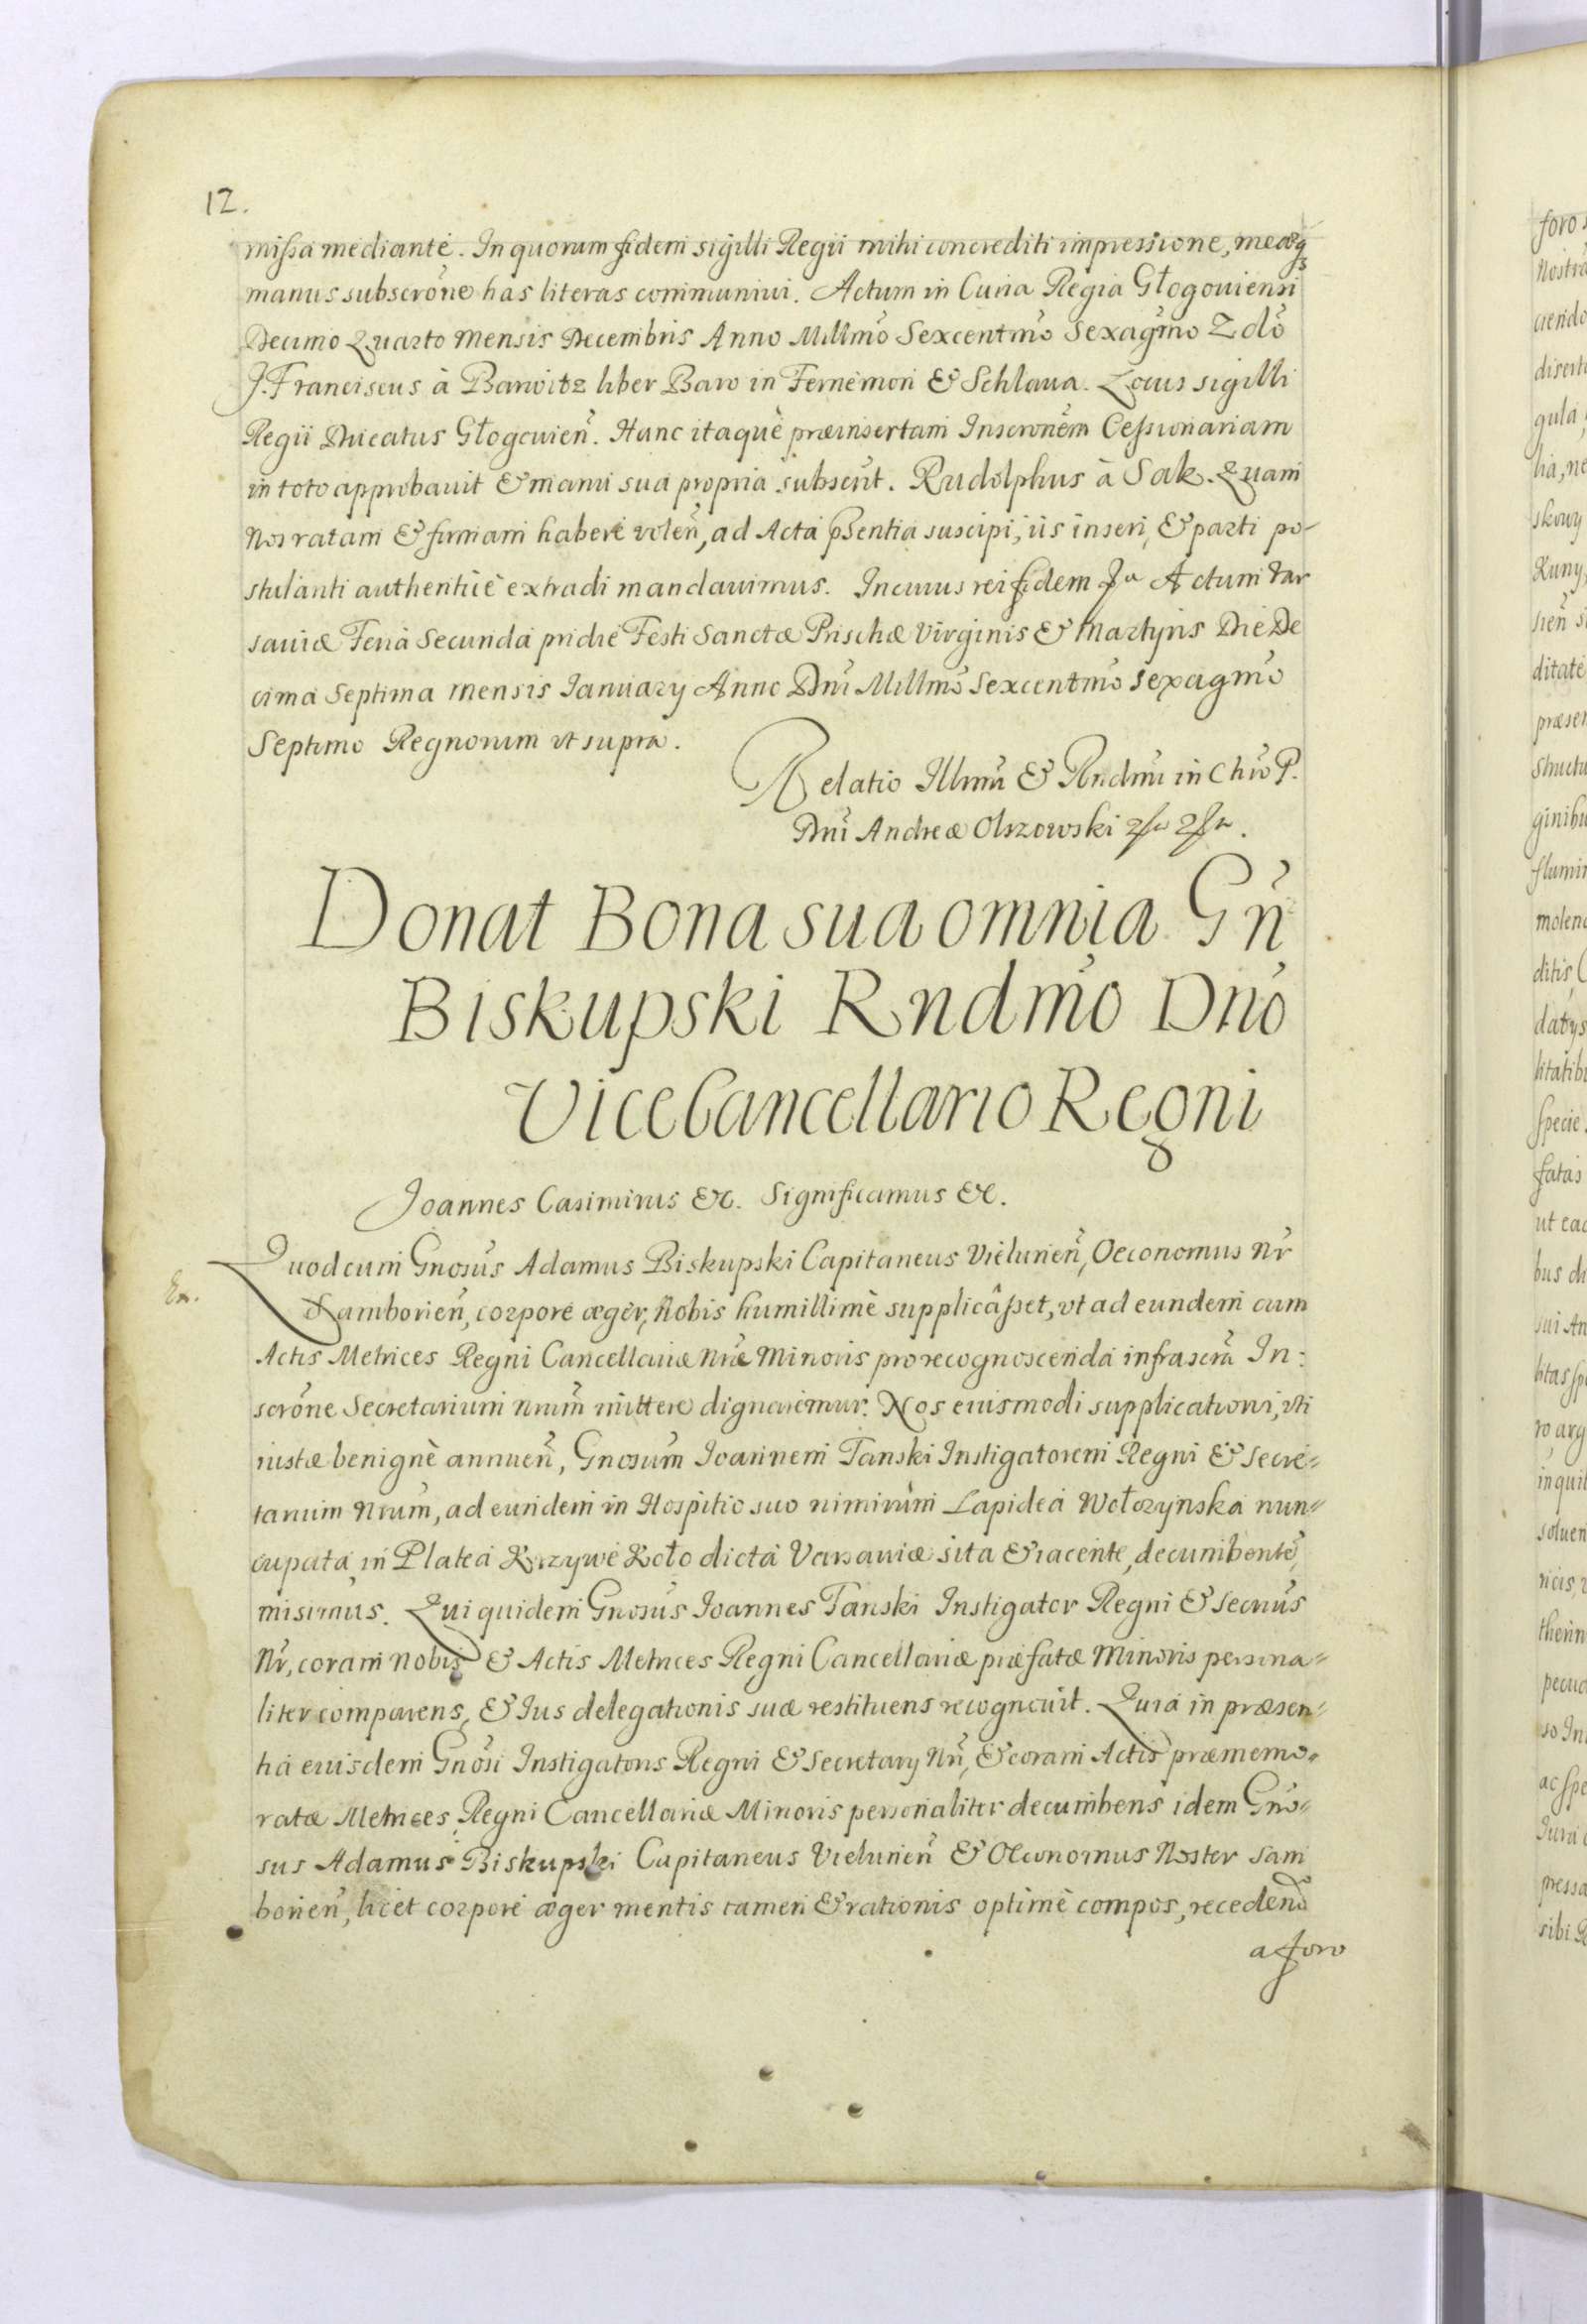 12.
missa mediante. In quorum fidem sigilli Regii mihi concrediti impressione, meaeq3
manus subscrone has literas communiui. Actum in Curia Regia Głogouiensi
Decimo Quarto mensis Decembris Anno Millmo Sexcentmo Sexagmo 2do
J. Franciscus à Barwitz liber Baro in Fernemon & Schlaua. Locus sigilli
Regii Ducatus Głogouien. Hanc itaquè praeinsertam Inscronem Cessionariam
in toto approbauit & manu sua propria subscrit. Rudolphus à Sak. Quam
Nos ratam & firmam habere volen, ad Acta pSentia suscipi, iis inseri, & parti po-
stulanti authenticè extradi mandauimus. In cuius rei fidem Actum Var
sauiæ Feria Secunda pridie Festi Sanctæ Prischæ Virginis & Martyris Die De
cima Septima mensis Ianuary Anno Dni Millmo Sexcentmo Sexagmo
Septimo Regnorum vt supra.
Relatio Illmi & Rndmi in Chro P.
Dni Andreæ Olszowski
Donat Bona sua omnia Gn
Biskupski Rndmo Dno
ViceCancellario Regni
Joannes Casimirus &c. Significamus &c.
Quod cum Gnosus Adamus Biskupski Capitaneus Vielunien, Oeconomus Nr
Samborien, corpore æger, Nobis humillimè supplicâsset, vt ad eundem cum
Actis Metrices Regni Cancellariæ Nræ Minoris pro recognoscenda infrascra In:
scrone Secretarium nrum mittere dignaremur. Nos eiusmodi supplicationi, vti
iustæ benignè annuen, Gnosum Ioannem Tanski Instigatorem Regni & Secre-
tarium Nrum, ad eundem in Hospitio suo nimirùm Lapidea Wołozynska nun-
cupata in Platea Krzywe Koło dicta Varsauiæ sita & iacente, decumbente,
misimus. Qui quidem Gnosus Ioannes Tanski Instigator Regni & Secrius
Nr, coram nobis & Actis Metrices Regni Cancellariæ præfatæ Minoris persona-
liter comparens, & Ius delegationis suæ restituens recognouit. Quia in præsen-
tia eiusdem Gnosi Instigatoris Regni & Secretary Nri, & coram Actis præmemo-
ratæ Metrices Regni Cancellariæ Minoris personaliter decumbens idem Gno-
sus Adamus Biskupski Capitaneus Vielunien & Oeconomus Noster Sam
borien, licet corpore æger mentis tamen & rationis optimè compos, recedend
a foro